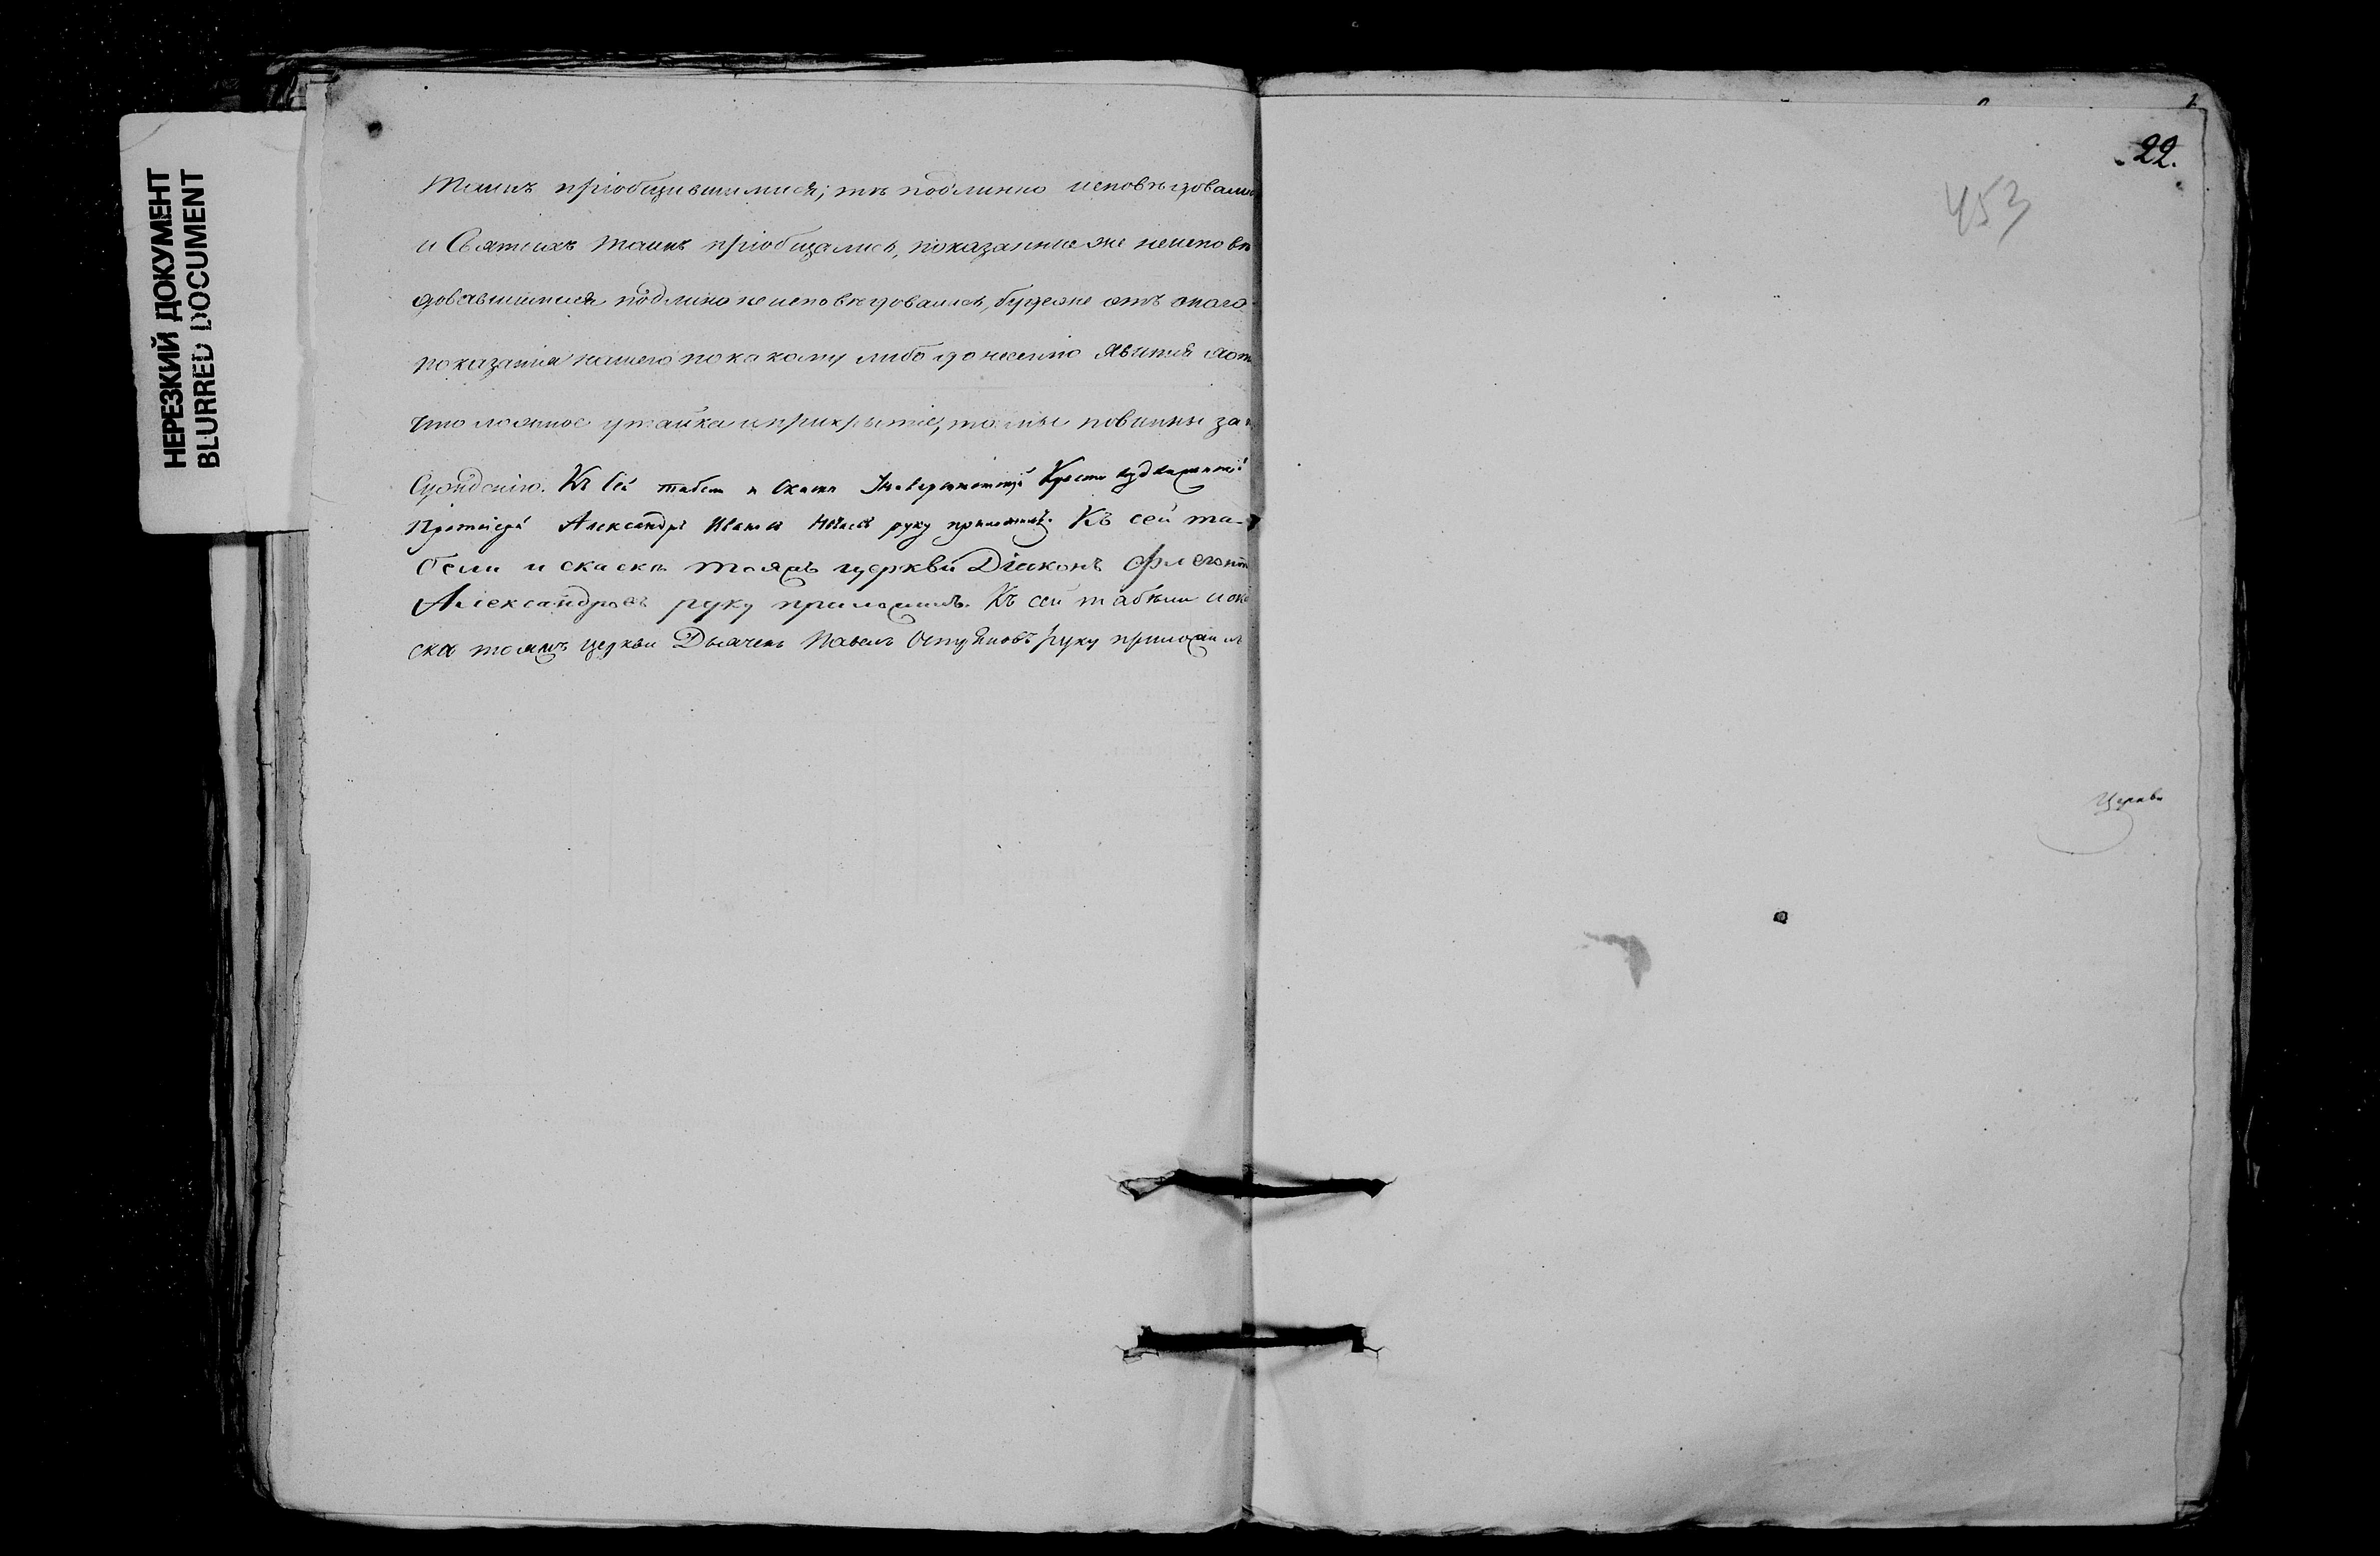 НЕРЕЗКИЙ ДОКУМЕНТ
BLURRED DOCUMENT
Таинъ пріобщившимися; тѣ подлинно исповѣдовали
и Святыхъ Таинъ пріобщались, показанные же неиспов
довавшимися подлино неисповѣдовались, буде же отъ онаго
показанія нашего покакому либо донесенію явится
что ложное утайка и прикрытіе, то мы повинны за
Сужденію. Къ сей табели и Скаски Крестовоздвиженской
Протоіерей Александръ руку приложилъ. Къ сей та-
бели и скаски тояжъ церкви Діаконъ Флегонтъ
Александровъ руку приложилъ. Къ сей табели и
ска тояжъ церкви Дьячекъ Павелъ руку приложилъ
22.
453
Церкви